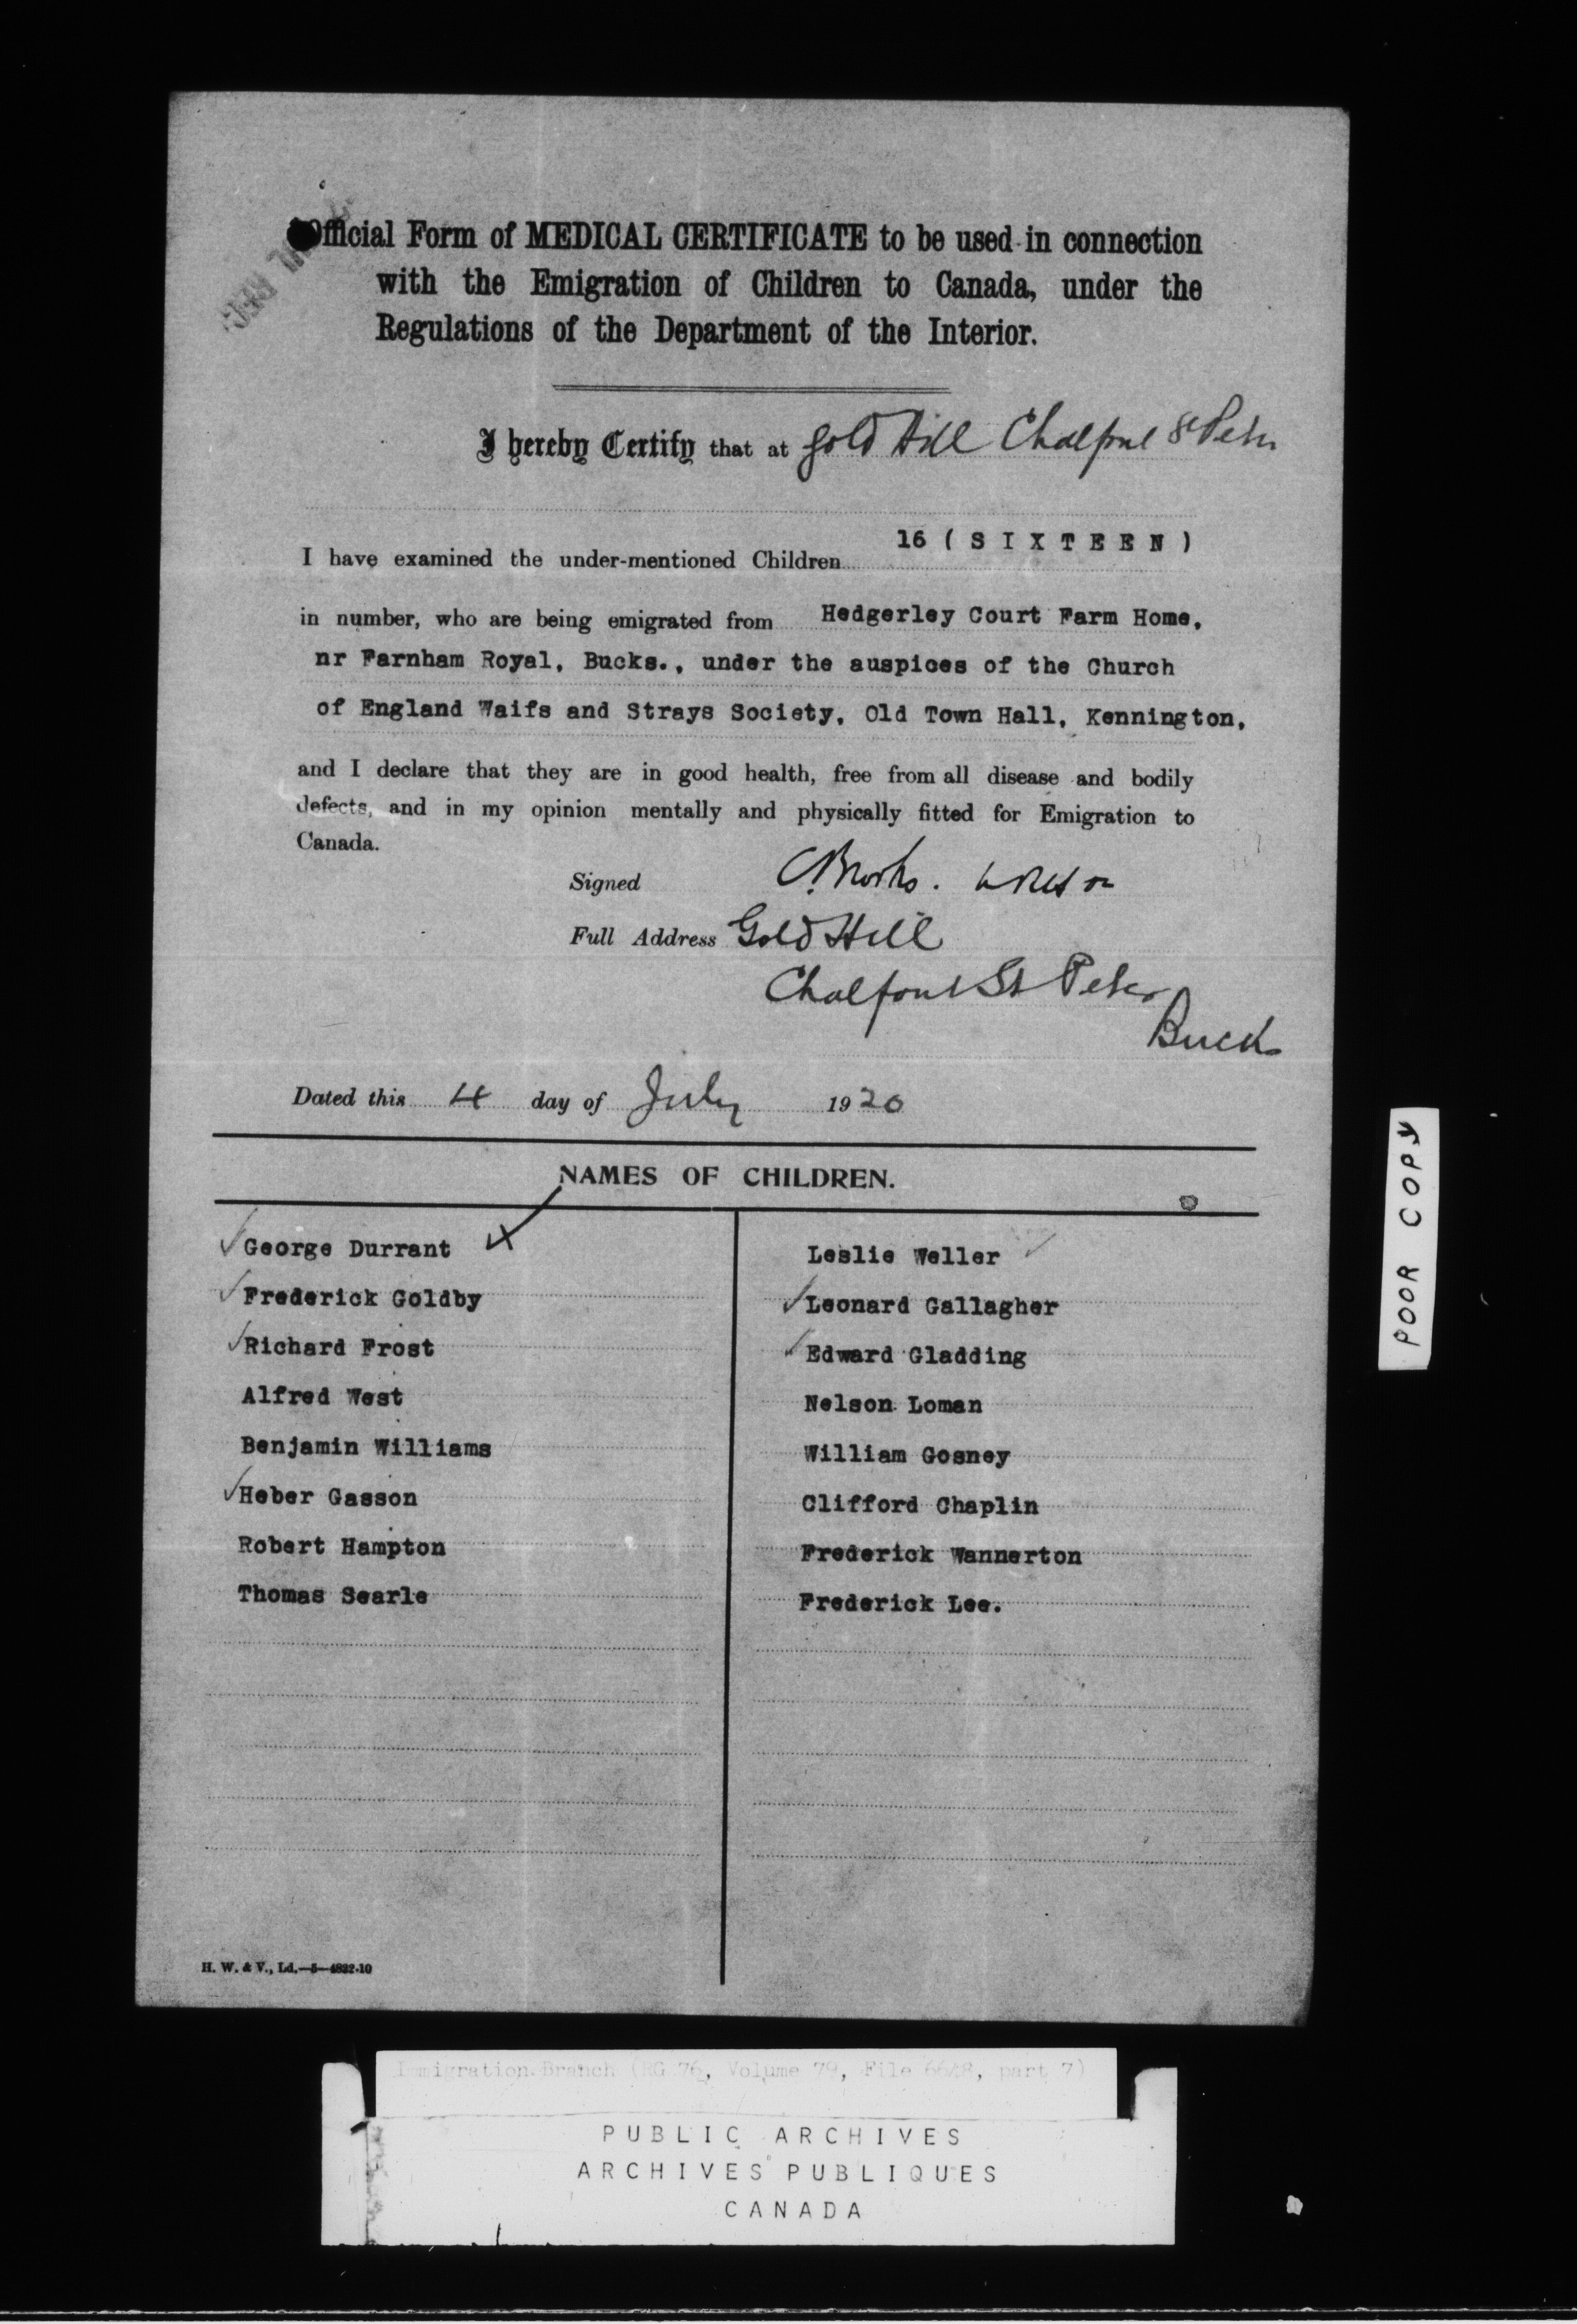 Official Form of MEDICAL CERTIFICATE to be used in connection
with the Emigration of Children to Canada, under the
Regulations of the Department of the Interior.
I hereby Certify that at Gold Hill Chalfont St Peter
16 ( S I X T E E N )
I have examined the under-mentioned Children
in number, who are being emigrated from Hedgerley Court Farm Home,
nr Farnham Royal, Bucks., under the auspices of the Church
of England Waifs and Strays Society, Old Town Hall, Kennington,
and I declare that they are in good health, free from all disease and bodily
defects, and in my opinion mentally and physically fitted for Emigration to
Canada.
Signed
Full Address Gold Hill
Chalfont St Peter
Bucks
Dated this 4 day of July 1920
NAMES OF CHILDREN.
George Durrant
Frederick Goldby
Richard Frost
Alfred West
Benjamin Williams
Heber Gasson
Robert Hampton
Thomas Searle
Leslie Weller
Leonard Gallagher
Edward Gladding
Nelson Loman
William Gosney
Clifford Chaplin
Frederick Wannerton
Frederick Lee.
H. W. & V., Ld.—5—4822-10
POOR COPY
Immigration Branch (RG 76, Volume 79, File 6648, part 7)
PUBLIC ARCHIVES
ARCHIVES PUBLIQUES
CANADA